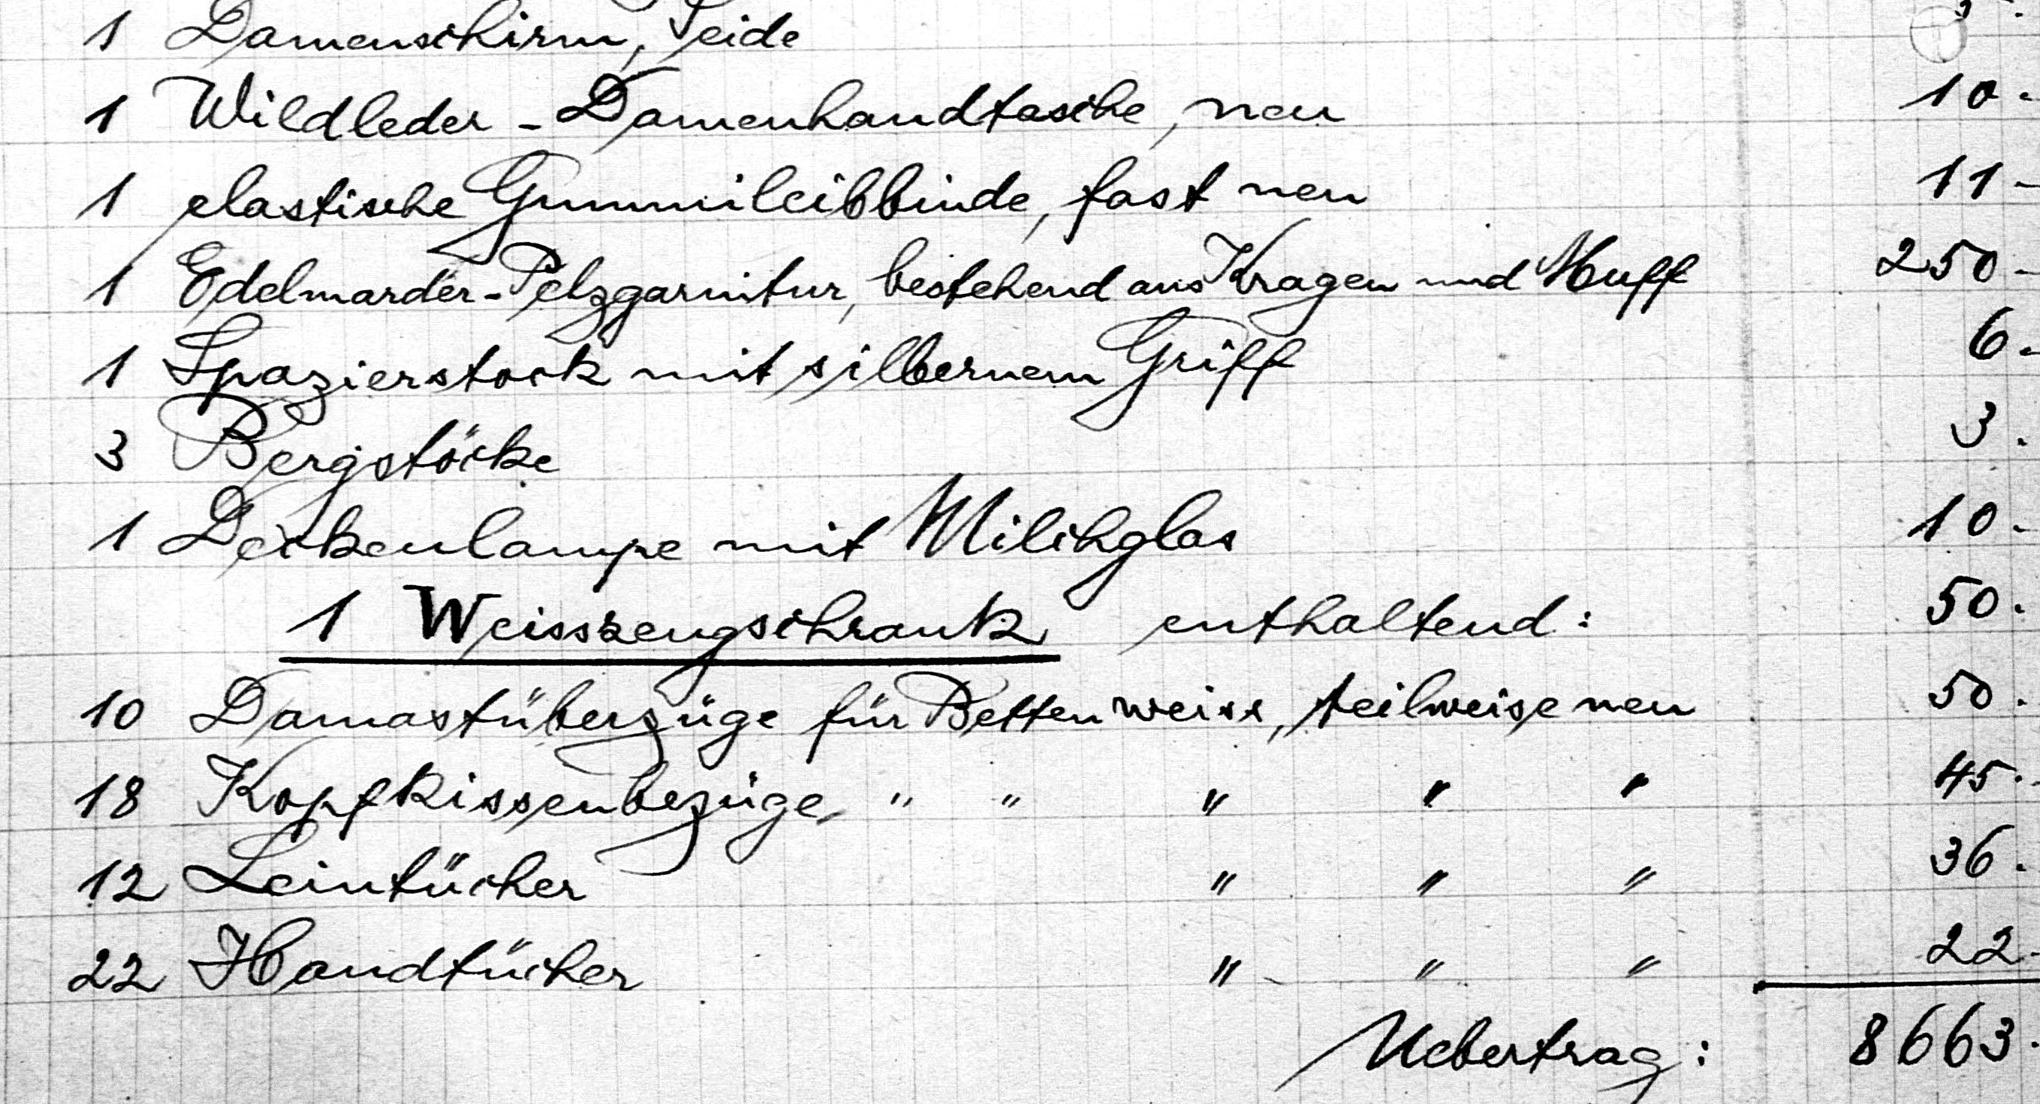 1 Damenschirm, Seide
1 Wildleder - Damenhandtasche, neu 10.-
1 elastische Gummileibbinde, fast neu 11-
1 Edelmarder-Pelzgarnitur, bestehend aus Kragen und Muff 250-
1 Spazierstock mit silbernem Griff 6.-
3 Bergstöcke 3.
1 Deckenlampe mit Milchglas 10.-
1 Weisszeugschrank enthaltend: 50.
10 Damastüberzüge für Betten weiss, teilweise neu 50.
18 Kopfkissenbezüge " " " " " 45.-
12 Leintücher " " " 36.
22 Handtücher " " " 22.-
Uebertrag: 8663.